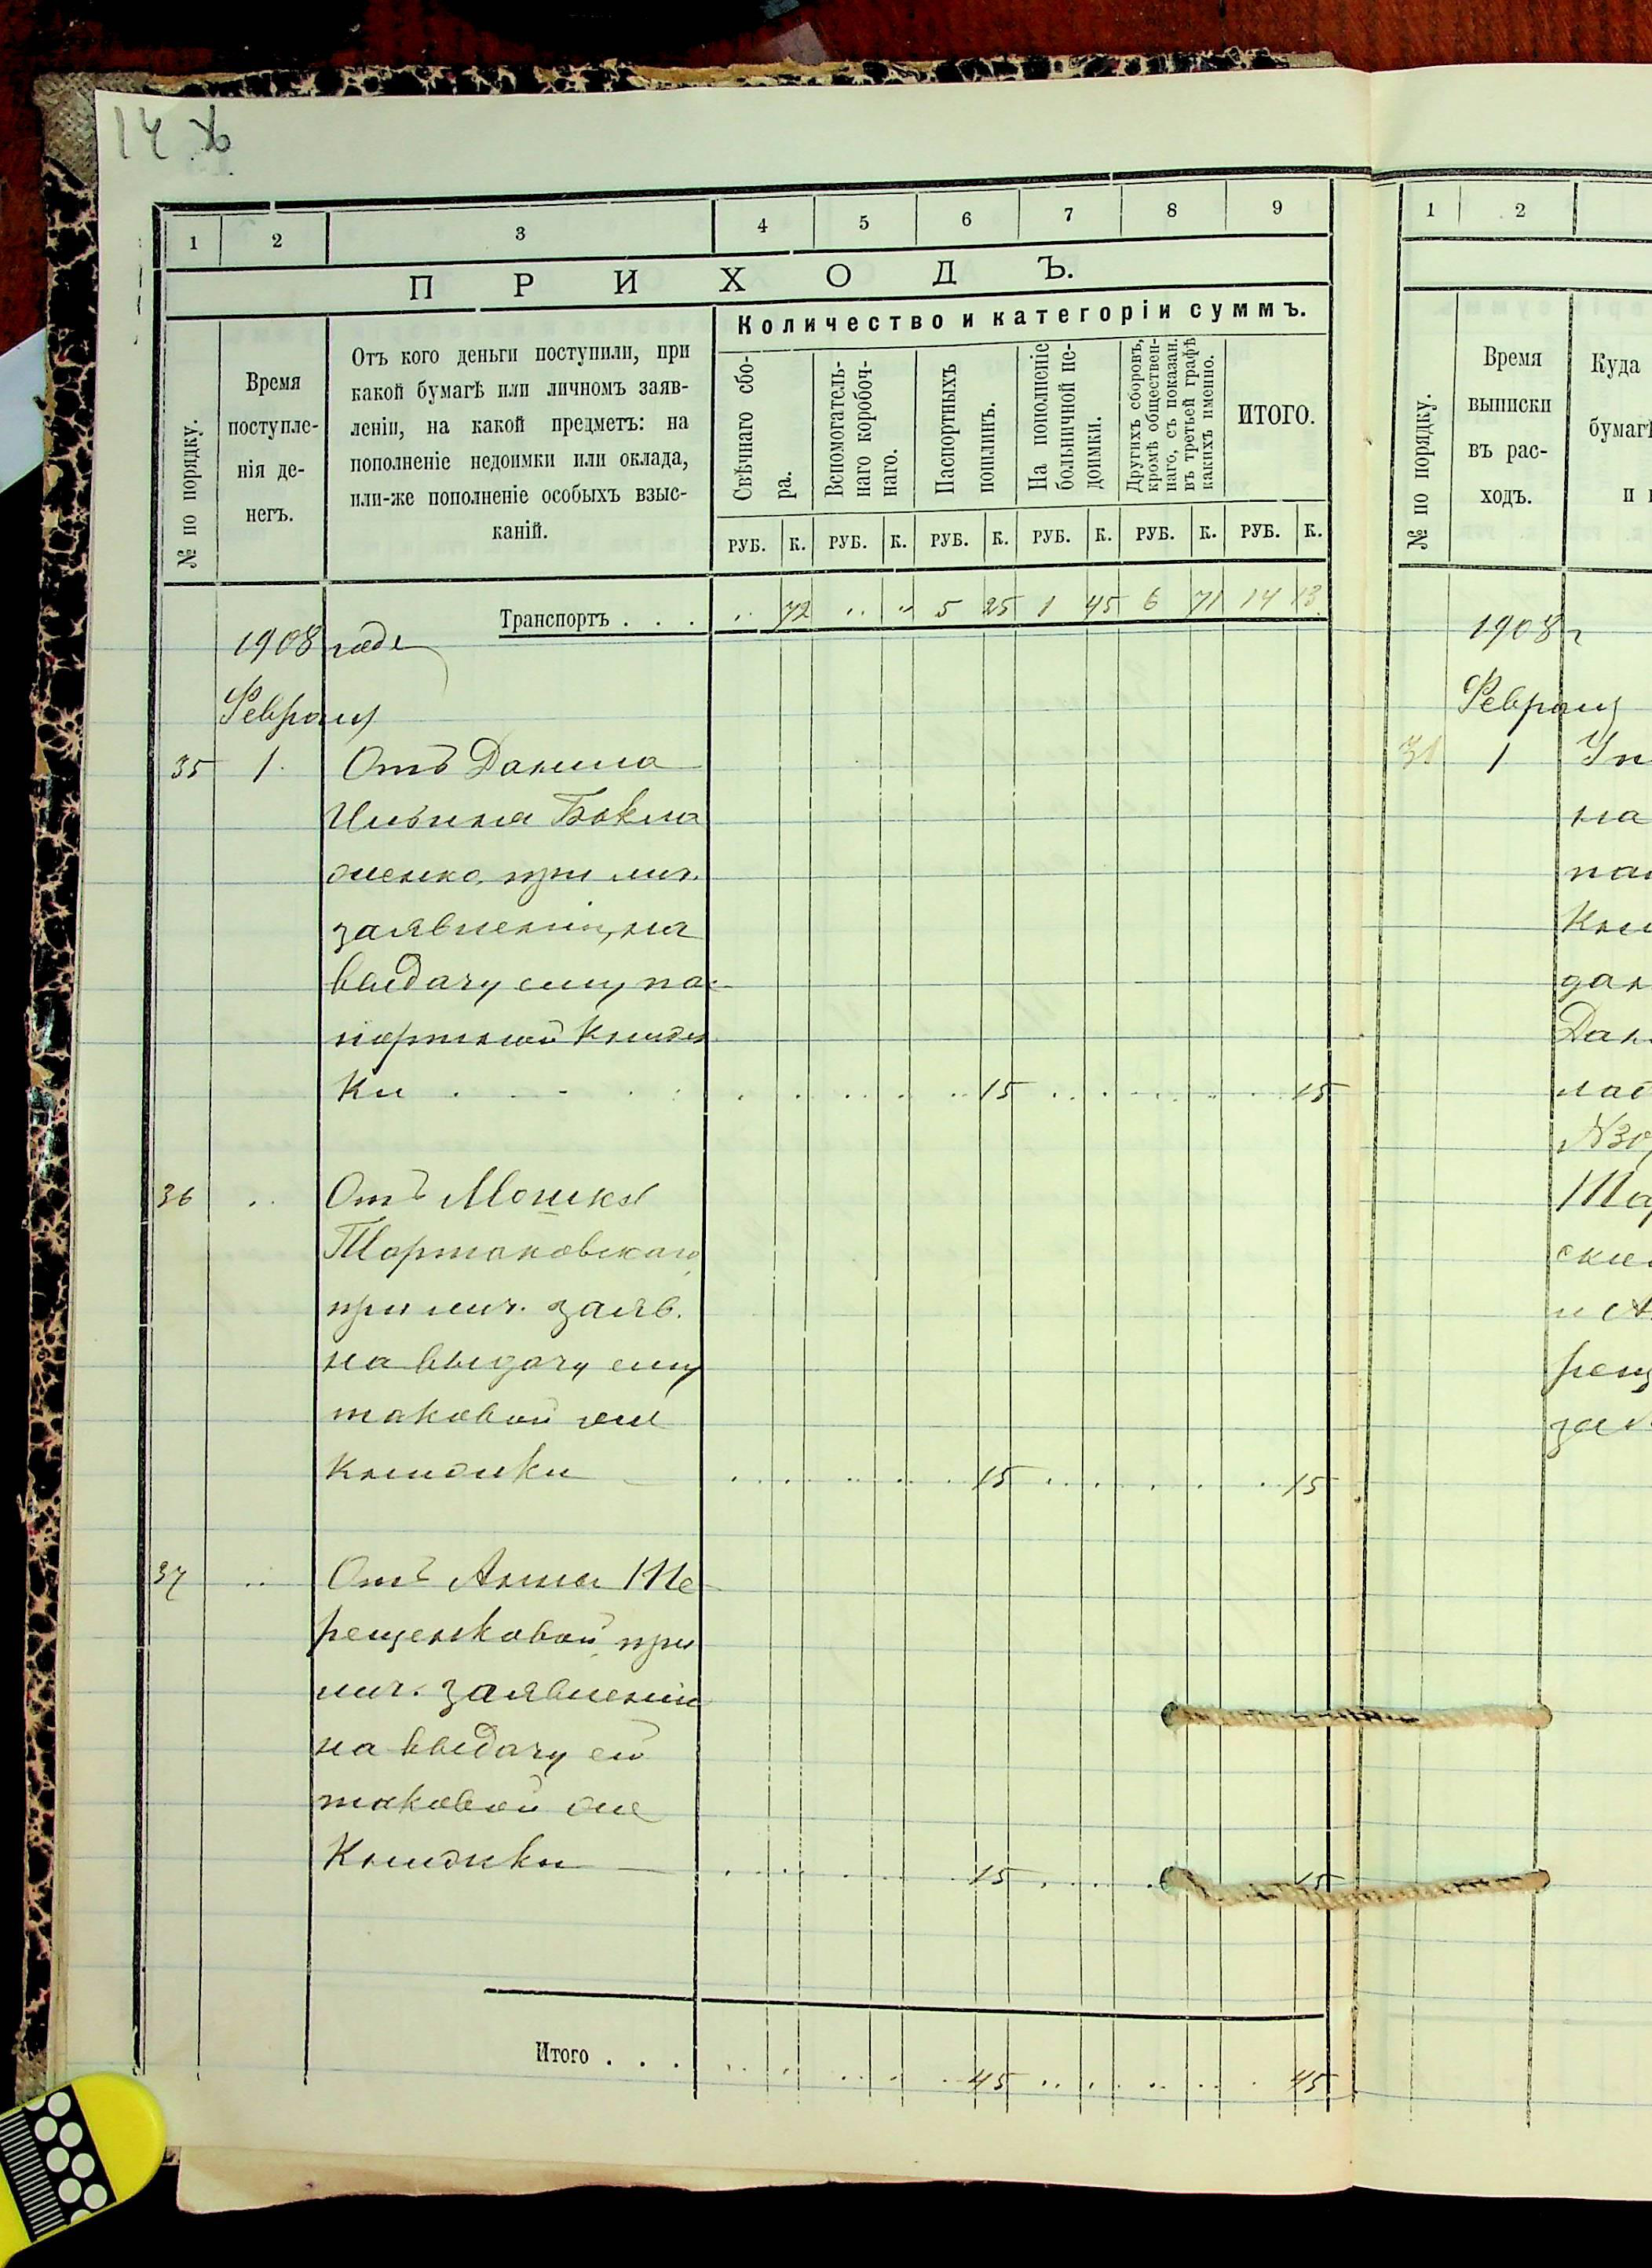 14 об
1 2 3 4 5 6 7 8 9
ПРИХОДЪ.
№ по порядку.
Время
поступле-
нія де-
негъ.
Отъ кого деньги поступили, при
какой бумагѣ или личномъ заяв-
леніи, на какой предметъ: на
пополненіе недоимки или оклада,
или-же пополненіе особыхъ взыс-
каній.
Количество и категоріи суммъ.
Свѣчнаго сбо-
ра.
Вспомогатель-
наго коробоч-
наго.
Паспортныхъ
пошлинъ.
На пополненіе
больничной не-
доимки.
Другихъ сборовъ,
кромѣ обществен-
наго, съ показан.
въ третьей графѣ
какихъ именно.
ИТОГО.
РУБ. К. РУБ. К. РУБ. К. РУБ. К. РУБ. К. РУБ. К.
Транспортъ . . . .. 72 .. .. 5 25 1 45 6 71 14 13
1908 года
Февраля
35 1. Отъ Данила
Ильина Бакла
женко, при лич.
заявленіи, на
выдачу ему пас-
портной книж
ки 15 15
36 .. Отъ Мошки
Тартаковскаго,
при лич. заяв.
на выдачу ему
таковой же
книжки 15 15
37 .. Отъ Анны Те-
рещенковой, при
лич. заявленіи
на выдачу ей
таковой же
книжки 15 15
Итого . . . 45 45
1 2
№ по порядку.
Время
выписки
въ рас-
ходъ.
Куда
бумаг
и
1908 г
Февраля
31 1
на
дан
Дан
№30
Тар
ские
и А
рещ
за №